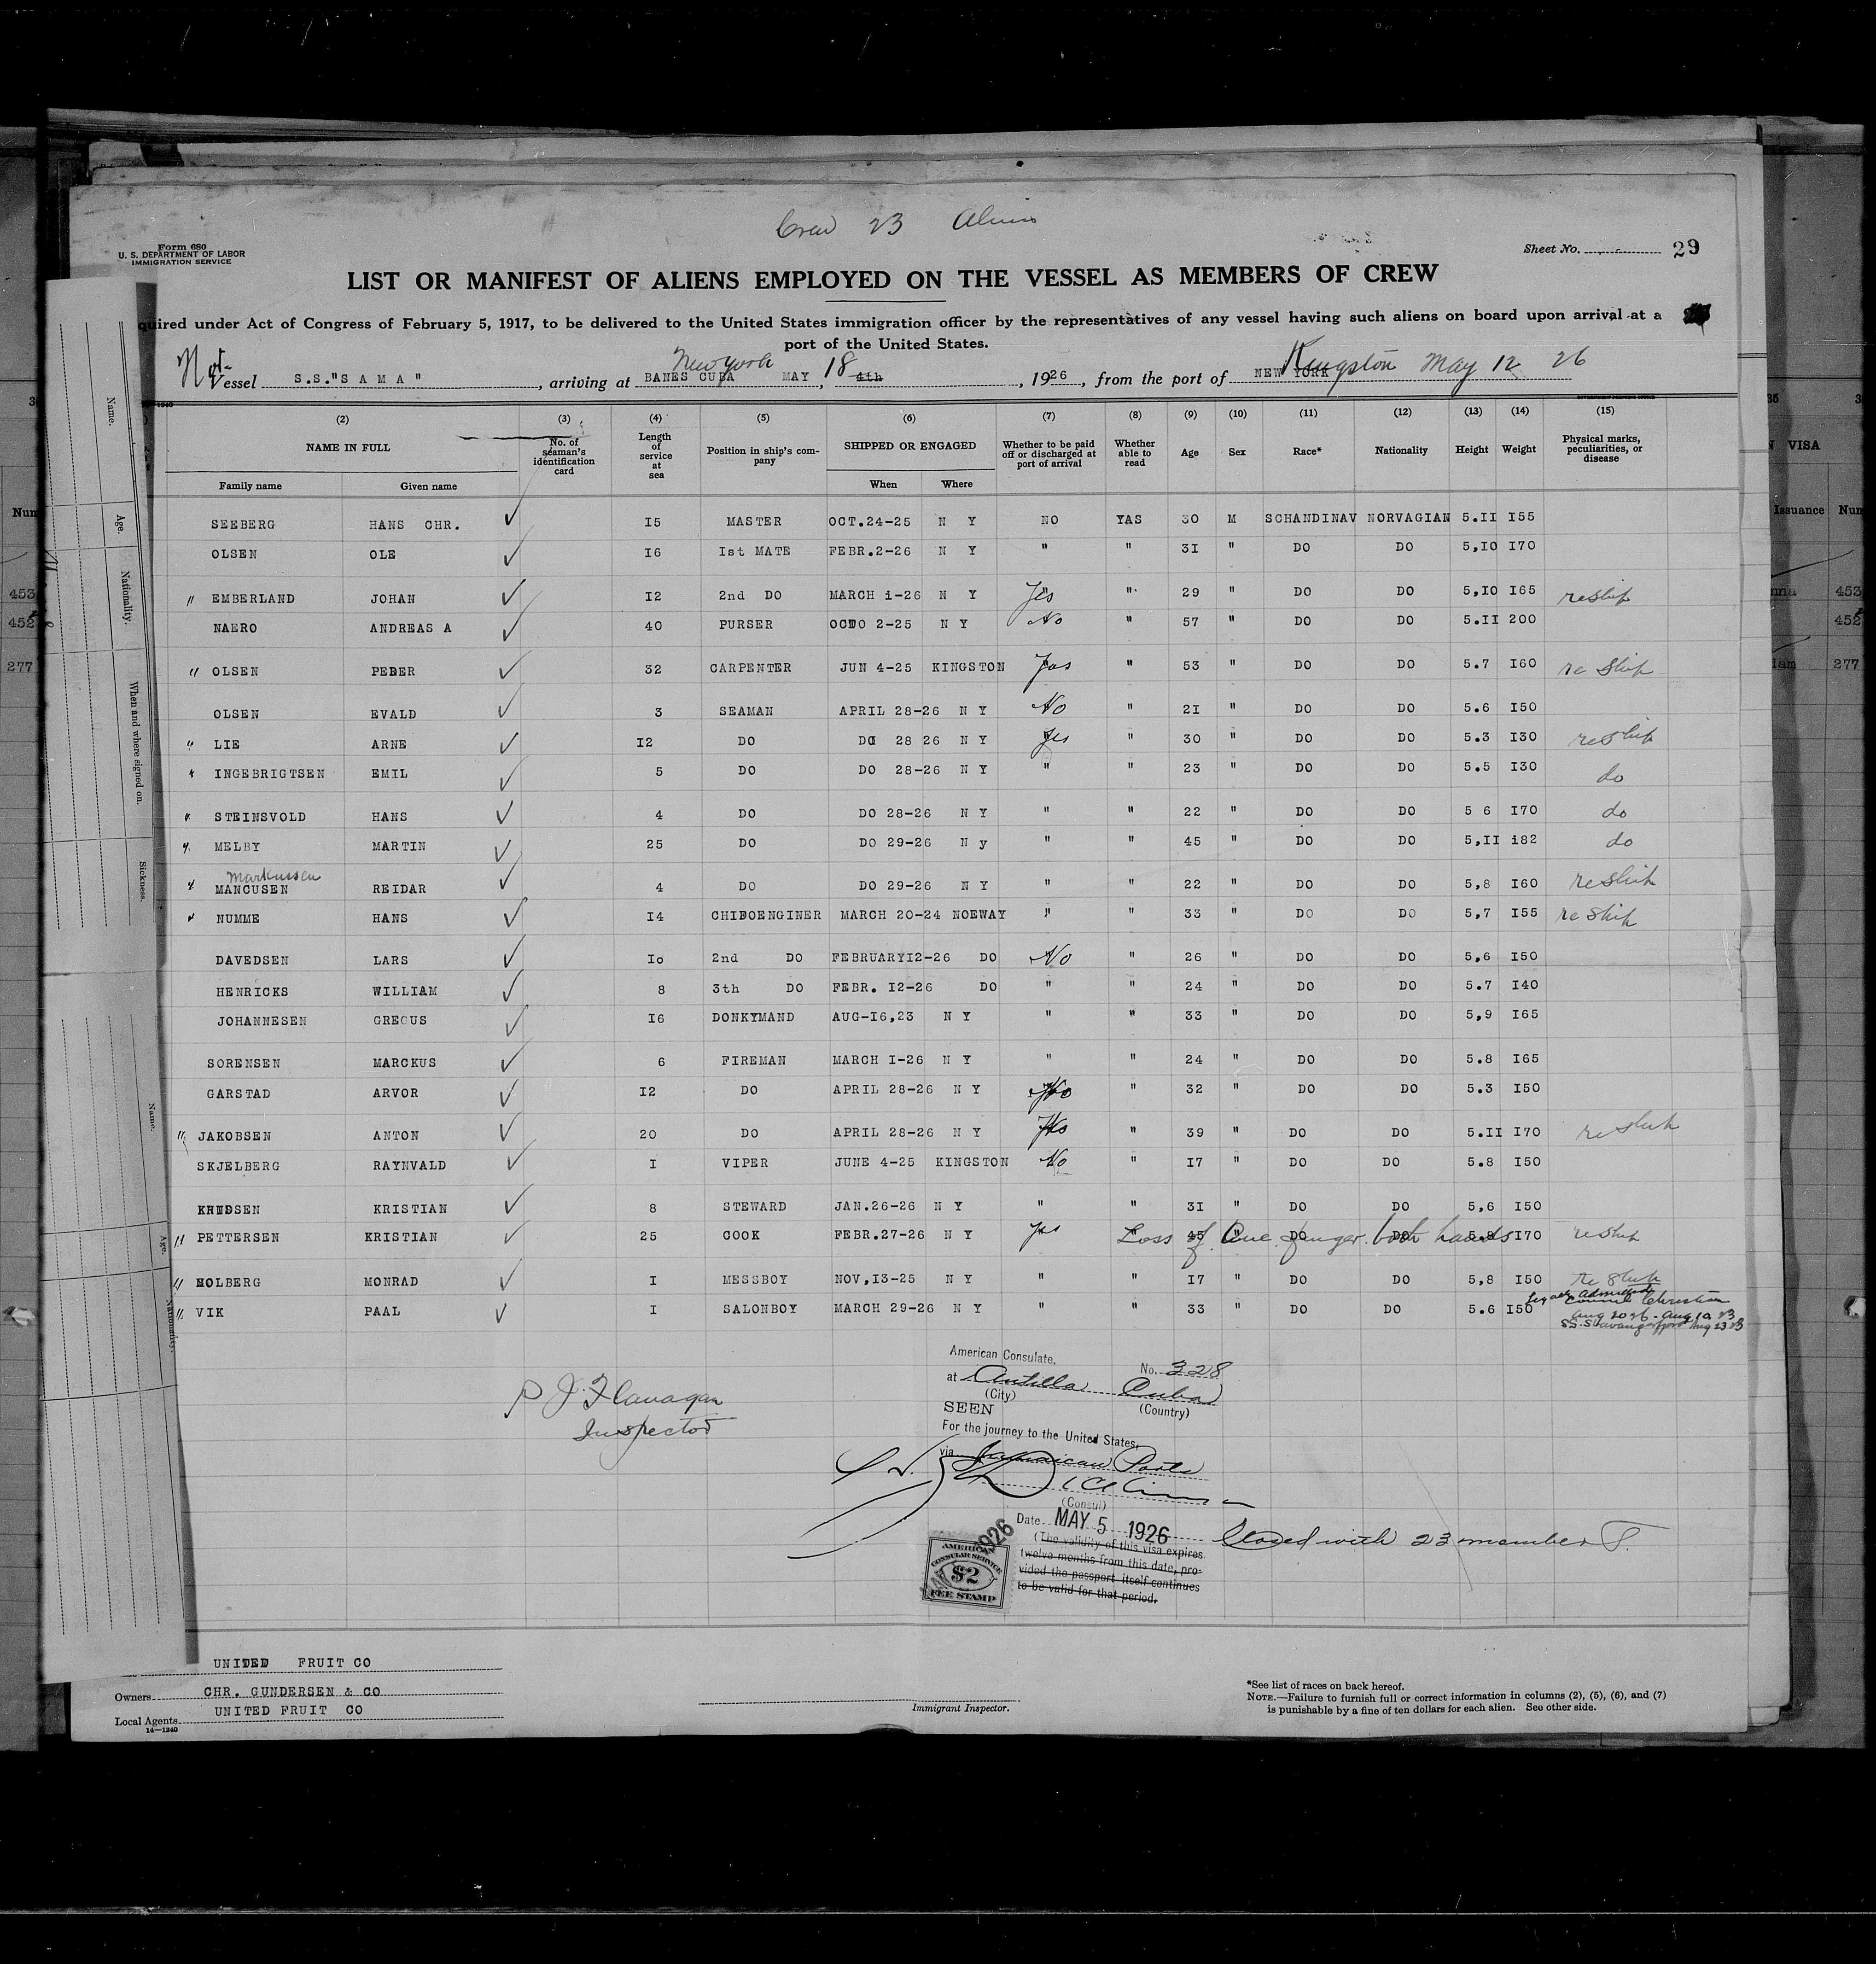 Crew 23 Aliens
Form 680
U. S. DEPARTMENT OF LABOR
IMMIGRATION SERVICE
Sheet No. 29
LIST OR MANIFEST OF ALIENS EMPLOYED ON THE VESSEL AS MEMBERS OF CREW
quired under Act of Congress of February 5, 1917, to be delivered to the United States immigration officer by the representatives of any vessel having such aliens on board upon arrival at a
port of the United States.
New York 18 Kingston May 12 26
Vessel S.S."S A M A", arriving at BANES CUBA MAY, 4th, 1926, from the port of NEW YORK
(2) (3) (4) (5) (6) (7) (8) (9) (10) (11) (12) (13) (14) (15)
NAME IN FULL No. of seaman's identification card Length of service at sea Position in ship's company SHIPPED OR ENGAGED Whether to be paid off or discharged at port of arrival Whether able to read Age Sex Race* Nationality Height Weight Physical marks, peculiarities, or disease
Family name Given name When Where
SEEBERG HANS CHR. ✓ I5 MASTER OCT.24-25 N Y NO YAS 30 M SCHANDINAV NORVAGIAN 5.II I55
OLSEN OLE ✓ I6 Ist MATE FEBR.2-26 N Y " " 3I " DO DO 5,IO I70
" EMBERLAND JOHAN ✓ I2 2nd DO MARCH i-26 N Y Yes " 29 " DO DO 5,IO I65 reship
NAERO ANDREAS A ✓ 40 PURSER OCTO 2-25 N Y No " 57 " DO DO 5.II 200
" OLSEN PEDER ✓ 32 CARPENTER JUN 4-25 KINGSTON Yes " 53 " DO DO 5.7 I60 re ship
OLSEN EVALD ✓ 3 SEAMAN APRIL 28-26 N Y No " 2I " DO DO 5.6 I50
" LIE ARNE ✓ I2 DO DO 28 26 N Y Yes " 30 " DO DO 5.3 I30 reship
" INGEBRIGTSEN EMIL ✓ 5 DO DO 28-26 N Y " " 23 " DO DO 5.5 I30 do
" STEINSVOLD HANS ✓ 4 DO DO 28-26 N Y " " 22 " DO DO 5 6 I70 do
" MELBY MARTIN ✓ 25 DO DO 29-26 N y " " 45 " DO DO 5,II i82 do
Markussen
" MANCUSEN REIDAR ✓ 4 DO DO 29-26 N Y " " 22 " DO DO 5,8 I60 reship
" NUMME HANS ✓ I4 CHIEOENGINER MARCH 20-24 NOEWAY " " 33 " DO DO 5,7 I55 reship
DAVEDSEN LARS ✓ Io 2nd DO FEBRUARYI2-26 DO No " 26 " DO DO 5,6 I50
HENRICKS WILLIAM ✓ 8 3th DO FEBR. I2-26 DO " " 24 " DO DO 5.7 I40
JOHANNESEN GREGUS ✓ I6 DONKYMAND AUG-I6,23 N Y " " 33 " DO DO 5,9 I65
SORENSEN MARCKUS ✓ 6 FIREMAN MARCH I-26 N Y " " 24 " DO DO 5.8 I65
GARSTAD ARVOR ✓ I2 DO APRIL 28-26 N Y No " 32 " DO DO 5.3 I50
" JAKOBSEN ANTON ✓ 20 DO APRIL 28-26 N Y " 39 " DO DO 5.II I70 reship
SKJELBERG RAYNVALD ✓ I VIPER JUNE 4-25 KINGSTON No " I7 " DO DO 5.8 I50
KNUDSEN KRISTIAN ✓ 8 STEWARD JAN.26-26 N Y " " 3I " DO DO 5,6 I50
" PETTERSEN KRISTIAN ✓ 25 COOK FEBR.27-26 N Y Yes Loss of One finger both hands 45 " DO DO 5.8 I70 reship
" HOLBERG MONRAD ✓ I MESSBOY NOV,I3-25 N Y " " I7 " DO DO 5,8 I50 re ship
" VIK PAAL ✓ I SALONBOY MARCH 29-26 N Y " " 33 " DO DO 5.6 I50 legally admitted
Christian
S.S. Stavangerfjord Aug 13 23
P J. Flanagan
Inspector
American Consulate.
No. 328
at Antilla Cuba
(City) (Country)
SEEN
For the journey to the United States,
via Jamaican Ports
(Consul)
Date MAY 5 1926
(The validity of this visa expires
twelve months from this date, pro-
vided the passport itself continues
to be valid for that period.
1926
AMERICAN
CONSULAR SERVICE
$2
FEE STAMP
Closed with 23 members
UNITED FRUIT CO
Owners CHR. GUNDERSEN & CO
Local Agents UNITED FRUIT CO
14—1240
Immigrant Inspector.
*See list of races on back hereof.
NOTE.—Failure to furnish full or correct information in columns (2), (5), (6), and (7)
is punishable by a fine of ten dollars for each alien. See other side.
Name.
Age.
Nationality.
When and where signed on.
Sickness.
Name.
Age.
Nationality.
Num
453
452
277
VISA
Issuance Num
453
452
277